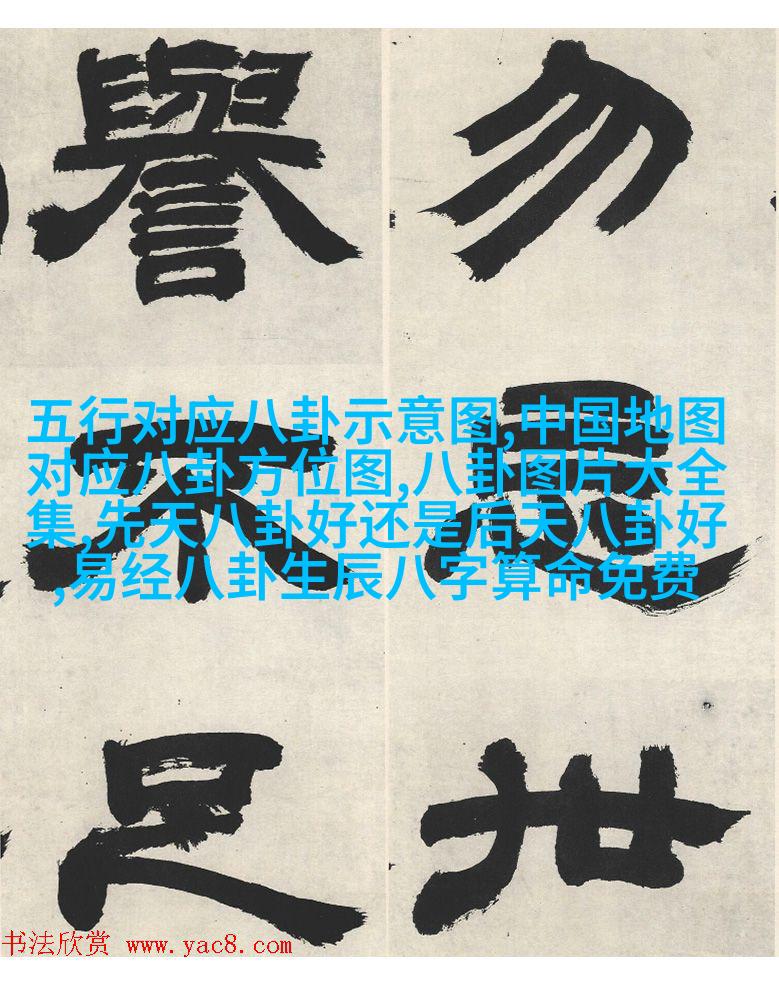 勿世
譽不足
五行对应八卦示意图,中国地图
对应八卦方位图,八卦图片大全
集,先天八卦好还是后天八卦好
,易经八卦生辰八字算命免费
书法欣赏 www.yac8.com